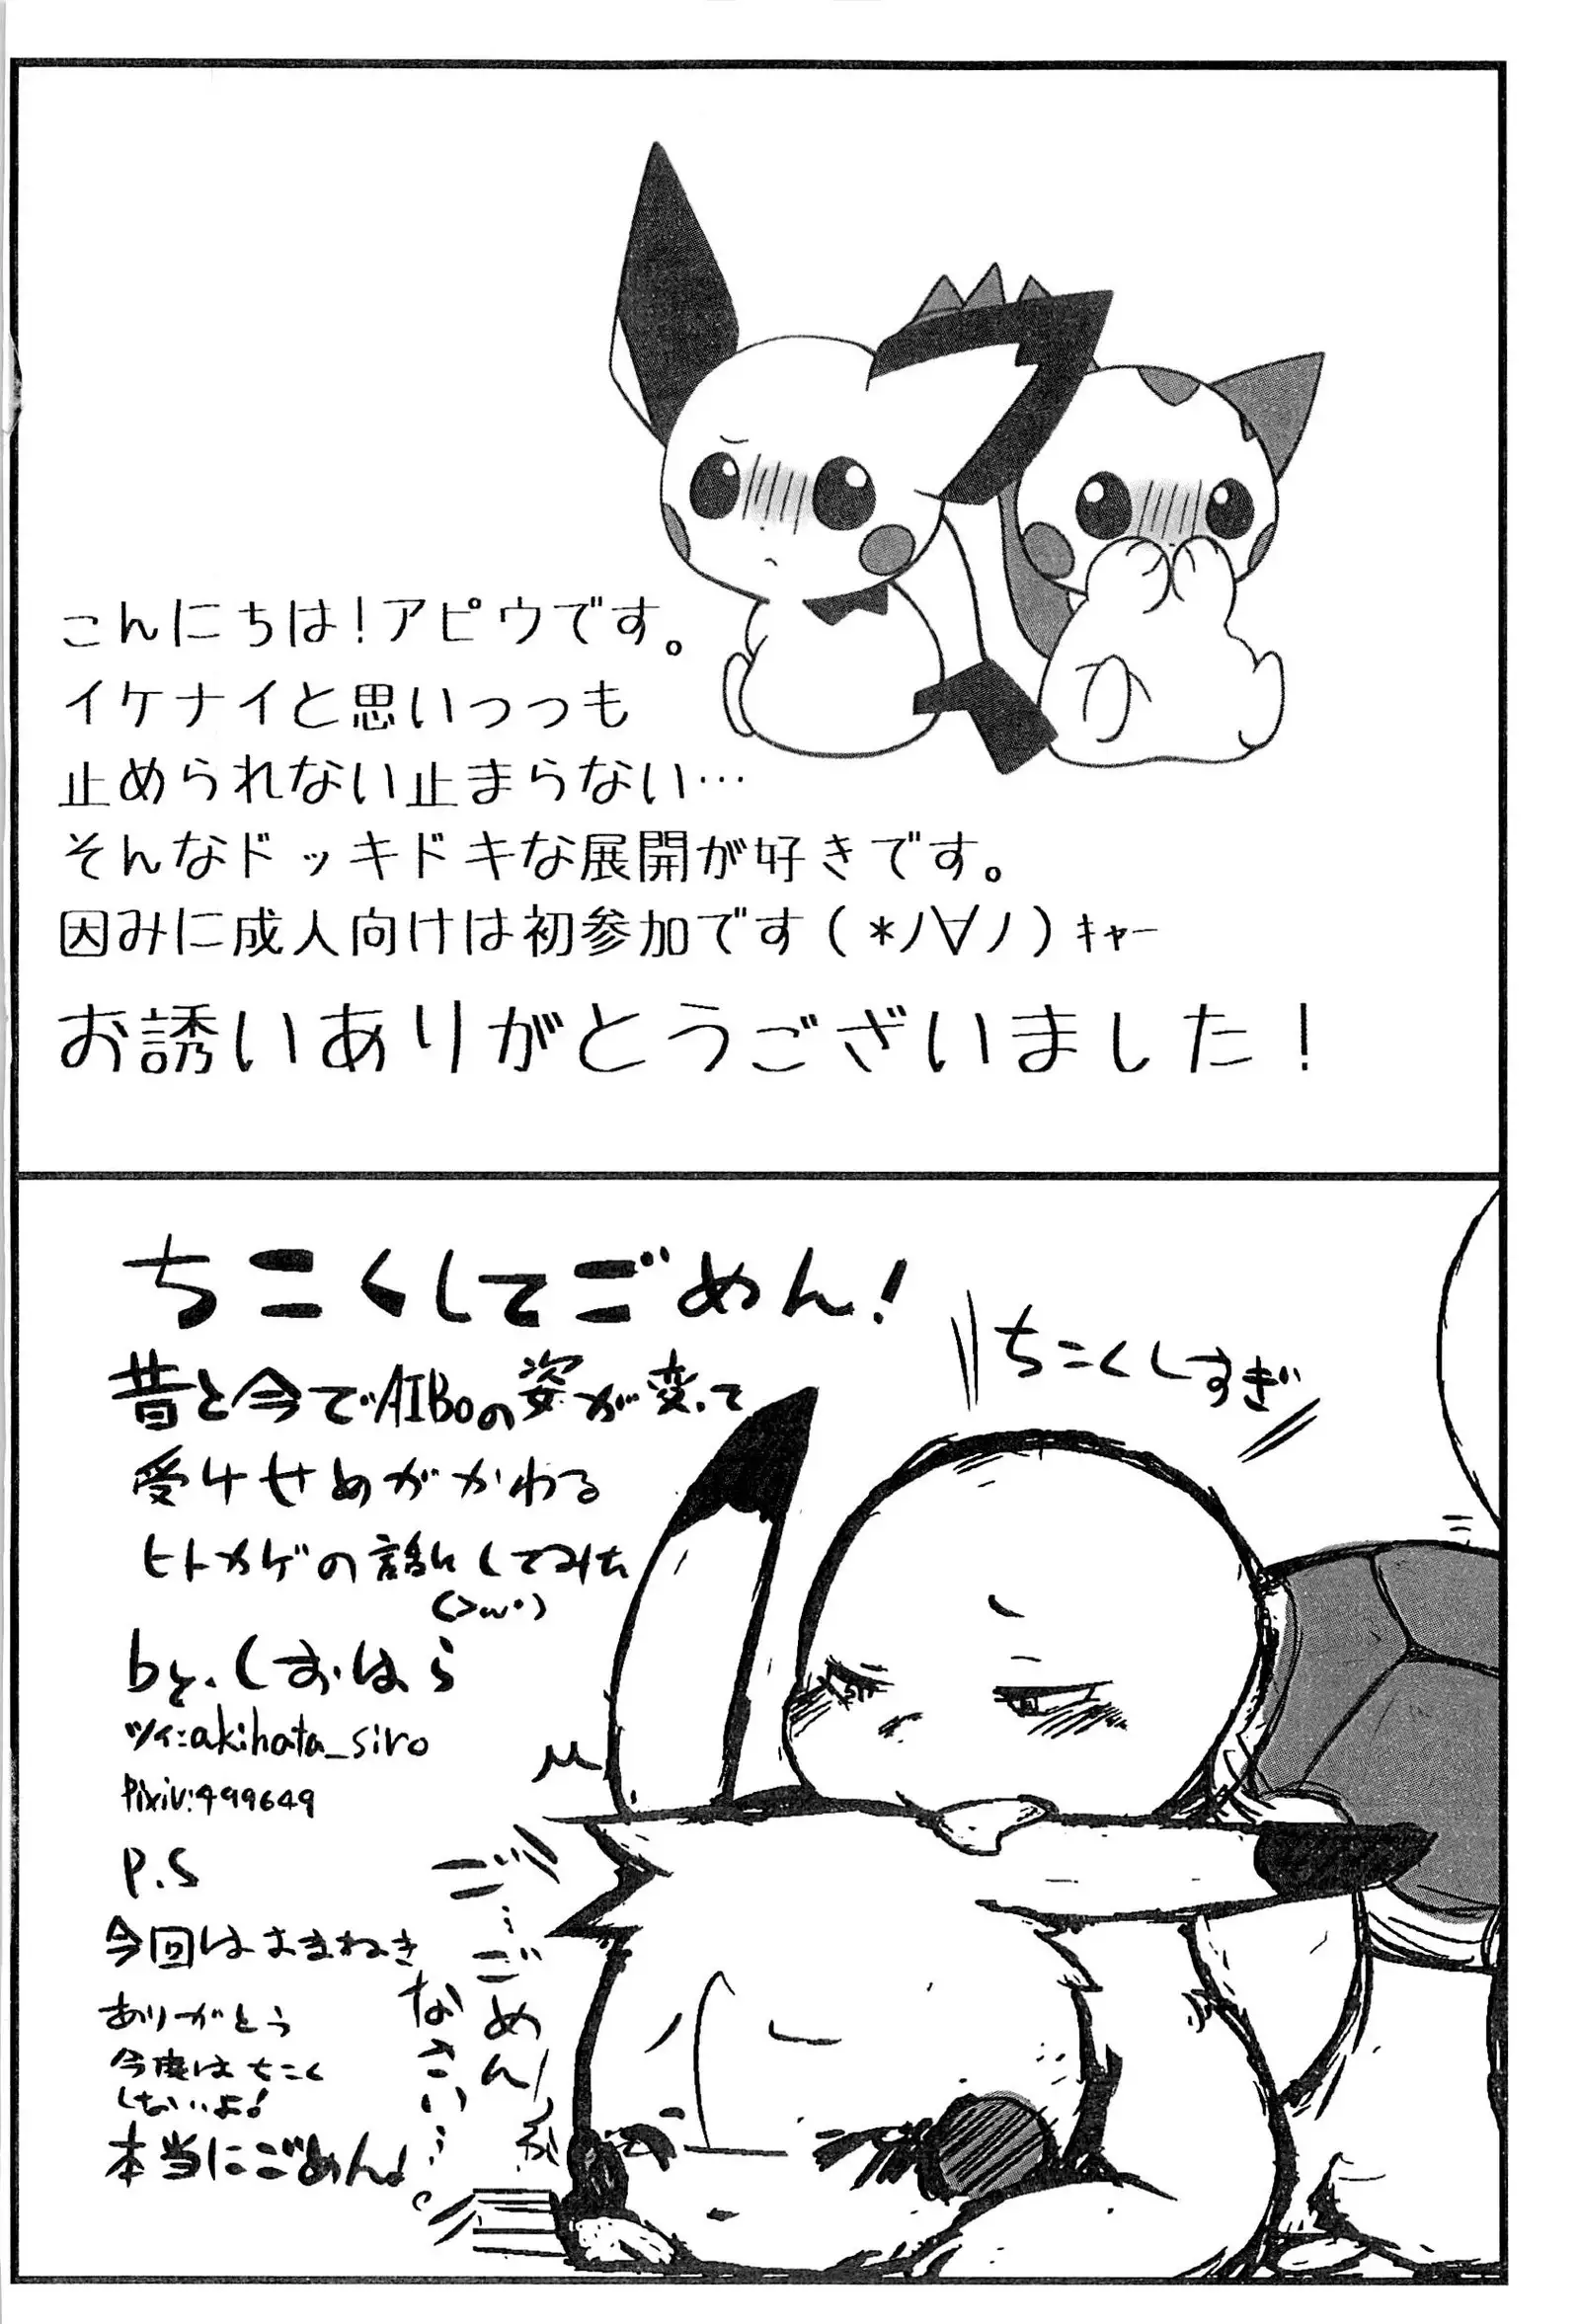 こんにちは！アピウです。
イケナイと思いっっも
止められない止まらない…
そんなドッキドキな展開が好きです。
因みに成人向けは初参加です(*ﾉ∀ﾉ)ｷｬｰ
お誘いありがとうございました！
ちこくしてごめん！
ちこくしすぎ
昔と今でAIBoの姿が変って
受けせめがかわる
ヒトカゲの話にしてみた
(>ω・)
by.しおはら
ツイ:akihata_siro
Pixiv:499649
P.S
今回はおまねき
ありがとう
今度はちこく
しないよ！
本当にごめん！
ご…ごめん
なさい…